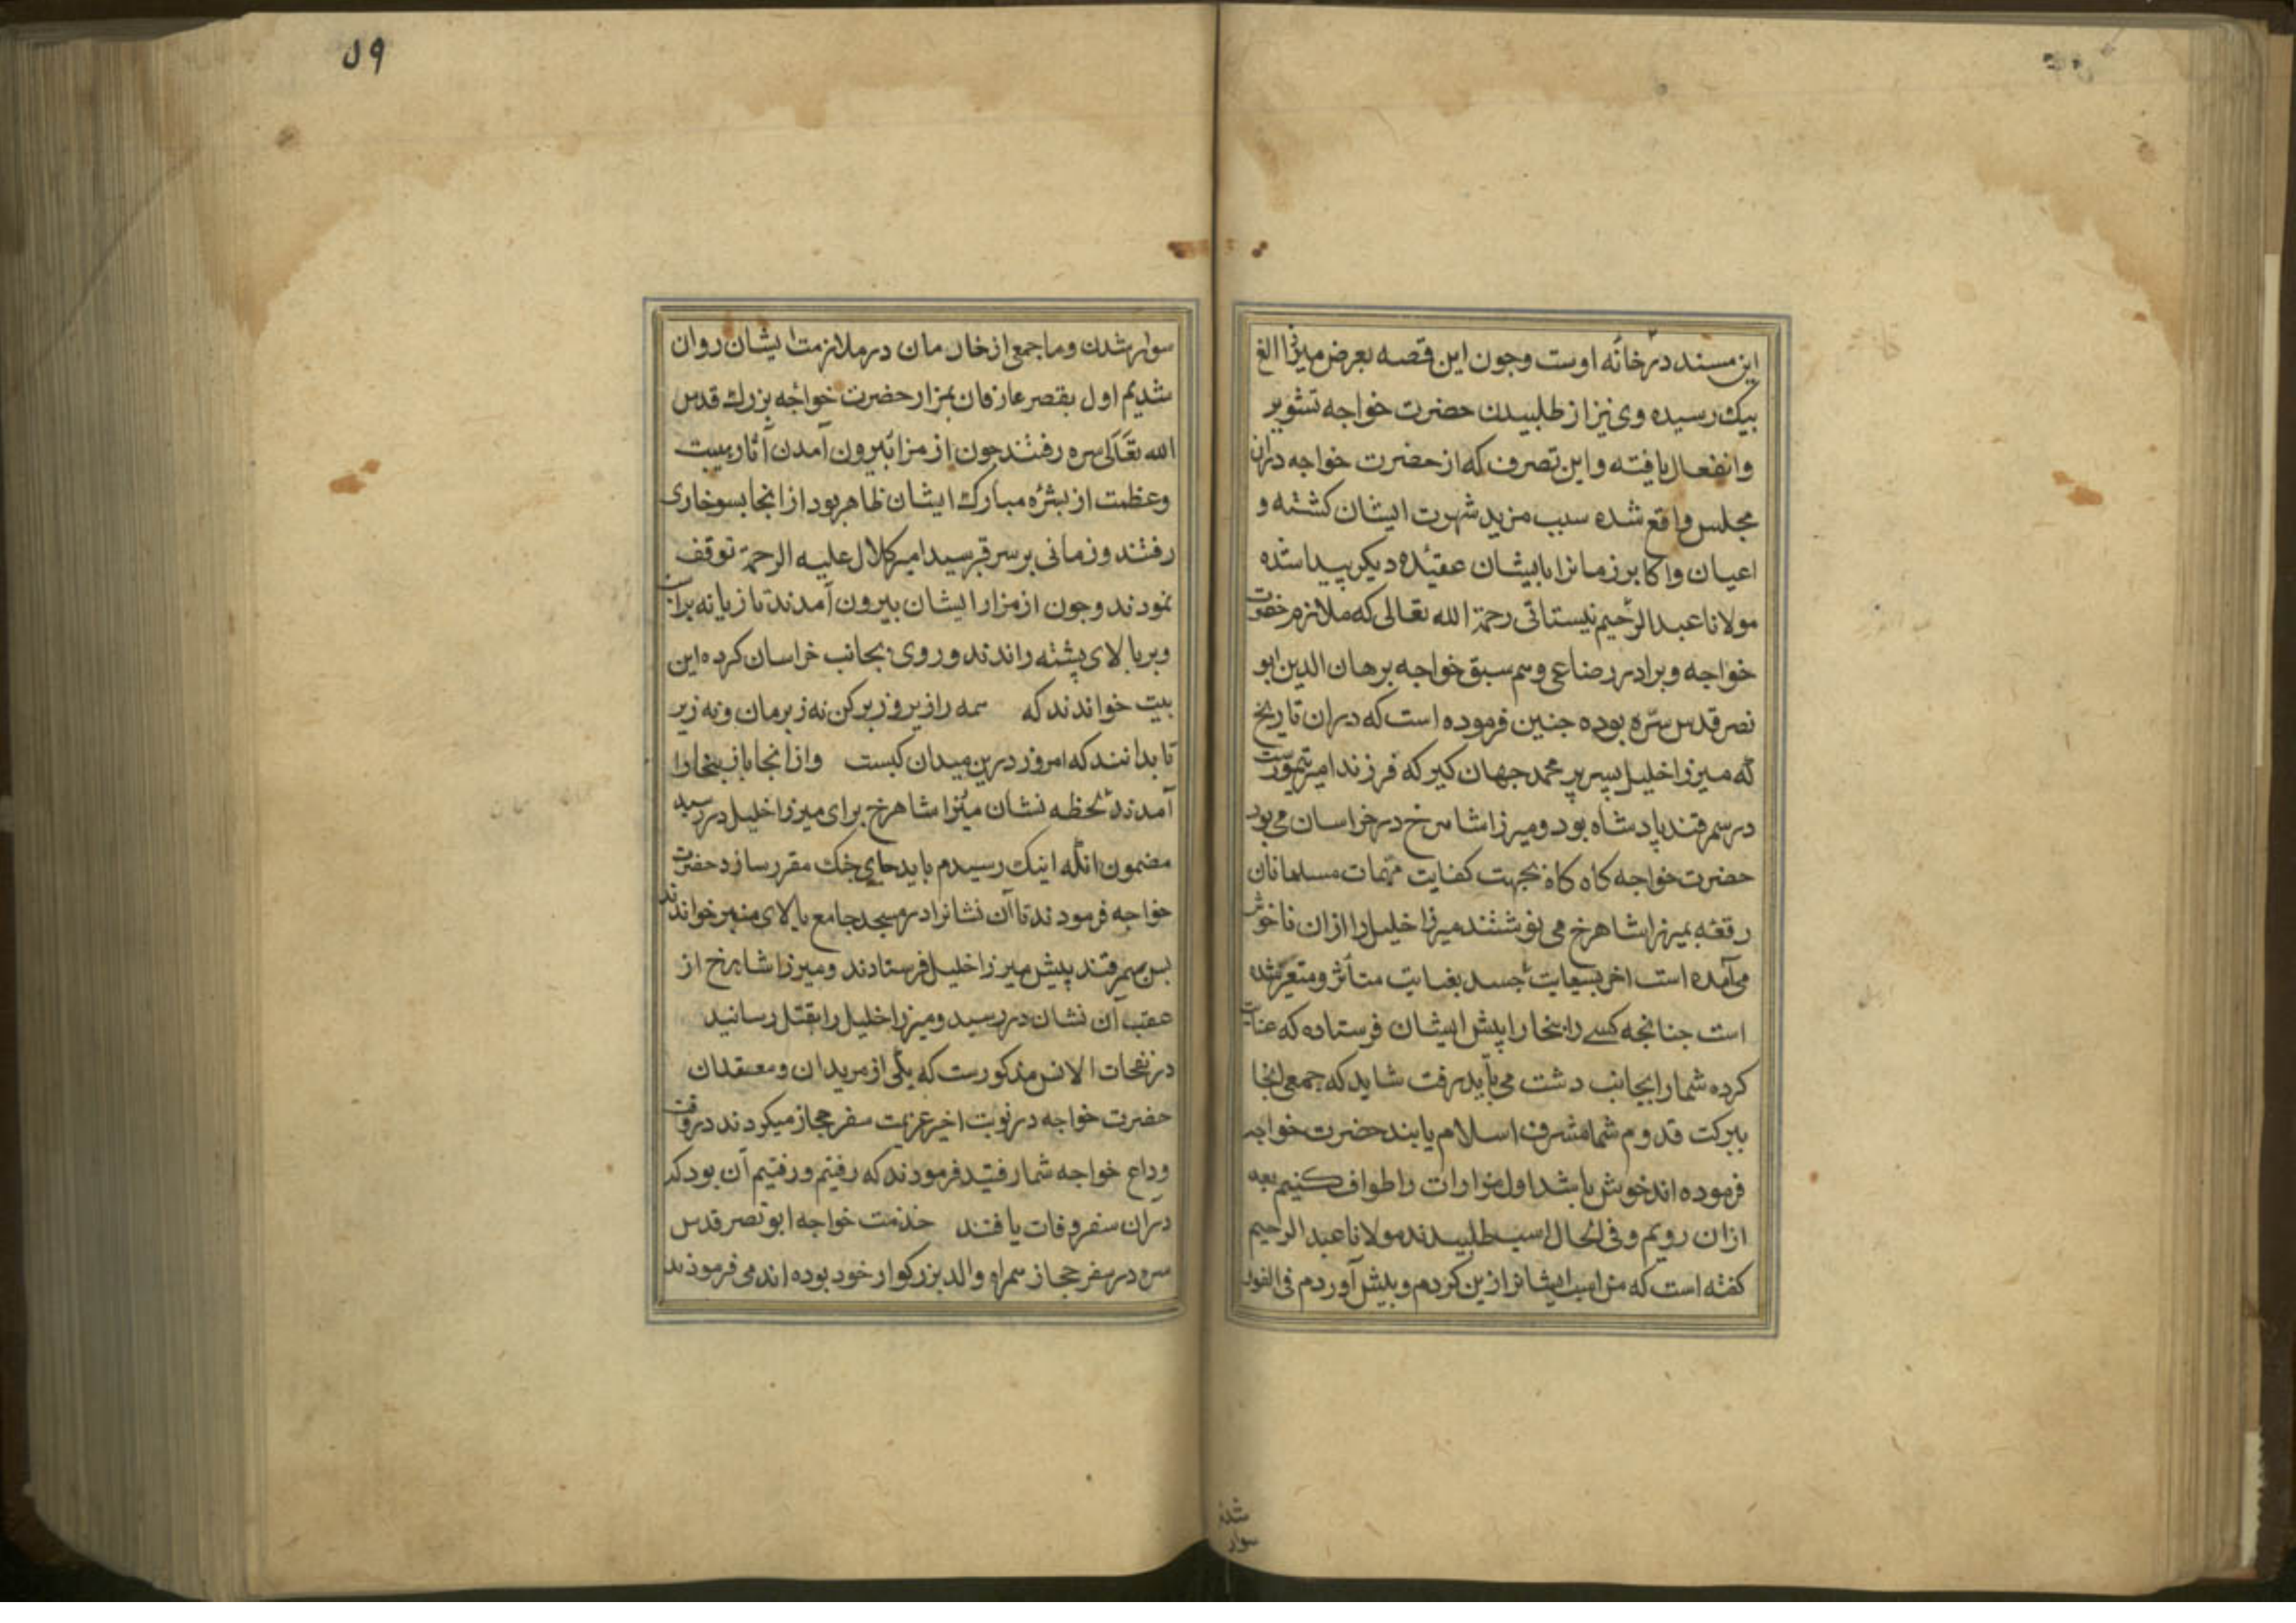 این مسند در خانه اوست وچون این قصه بعرض میرزا الغ
بیک رسیده وی نیز از طلبیدن حضرت خواجه تشویر
وانفعال یافته واین تصرف که از حضرت خواجه دران
مجلس واقع شده سبب مزید شهرت ایشان کشته و
اعیان واکابر زمانرا بایشان عقیده دیکر پیدا شده
مولانا عبدالرحیم نیستانی رحمة الله تعالی که ملازم حضرت
خواجه وبرادر رضاعی وهم سبق خواجه برهان الدین ابو
نصر قدس سره بوده جنین فرموده است که دران تاریخ
که میرزا خلیل پسر پیر محمد جهان کیر که فرزند امیر تیمورست
در سمرقند پادشاه بود ومیرزا شاهرخ در خراسان می بود
حضرت خواجه کاه کاه بجهت کفایت مهمات مسلمانان
رقعه بمیرزا شاهرخ می نوشتند میرزا خلیل را ازان ناخوش
می آمده است اخر بسعایت حسد بغایت متأثر ومتغیر شده
است جنانجه کسے را ببخارا پیش ایشان فرستاده که عنایت
کرده شما را بجانب دشت می باید رفت شاید که جمعی انجا
ببرکت قدوم شما مشرف اسلام یابند حضرت خواجه
فرموده اند خوش باشد اول مزارات را طواف کنیم بعد
ازان رویم وفی الحال اسب طلبیدند مولانا عبد الرحیم
کفته است که من اسب ایشانرا زین کردم وپیش آوردم فی الفور
شدن
سوار
۵۹
سوار شدن وما جمعی از خادمان در ملازمت ایشان روان
شدیم اول بقصر عارفان بمزار حضرت خواجه بزرك قدس
الله تعالی سره رفتند جون از مزار بیرون آمدن آثار هیبت
وعظمت از بشره مبارك ایشان ظاهر بود از انجا بسوخاری
رفتند وزمانی بر سر قبر سید امیر کلال علیه الرحمة توقف
نمودند وجون از مزار ایشان بیرون آمدند تازیانه بر اسب
وبر بالای پشته راندند وروی بجانب خراسان کرده این
بیت خواندند که همه را زیر وزبر کن نه زبرمان ونه زیر
تا بدانند که امروز درین میدان کیست وازانجا باز ببخارا
آمدند لحظه نشان میرزا شاهرخ برای میرزا خلیل در رسید
مضمون انکه اینك رسیدم باید جای جنك مقرر سازد حضرت
خواجه فرمودند تا آن نشانرا در مسجد جامع بالای منبر خواندند
بس بسمرقند پیش میرزا خلیل فرستادند ومیرزا شاهرخ از
عقب آن نشان در رسید ومیرزا خلیل را بقتل رسانید
در نفحات الانس مذکورست که یکی از مریدان ومعتقدان
حضرت خواجه در نوبت اخیر عزیمت سفر حجاز میکردند در وقت
وداع خواجه شما رفتید فرمودند که رفتیم ورفتیم آن بود که
در آن سفر وفات یافتند خدمت خواجه ابو نصر قدس
سره در سفر حجاز همراه والد بزرکوار خود بوده اند می فرمودند